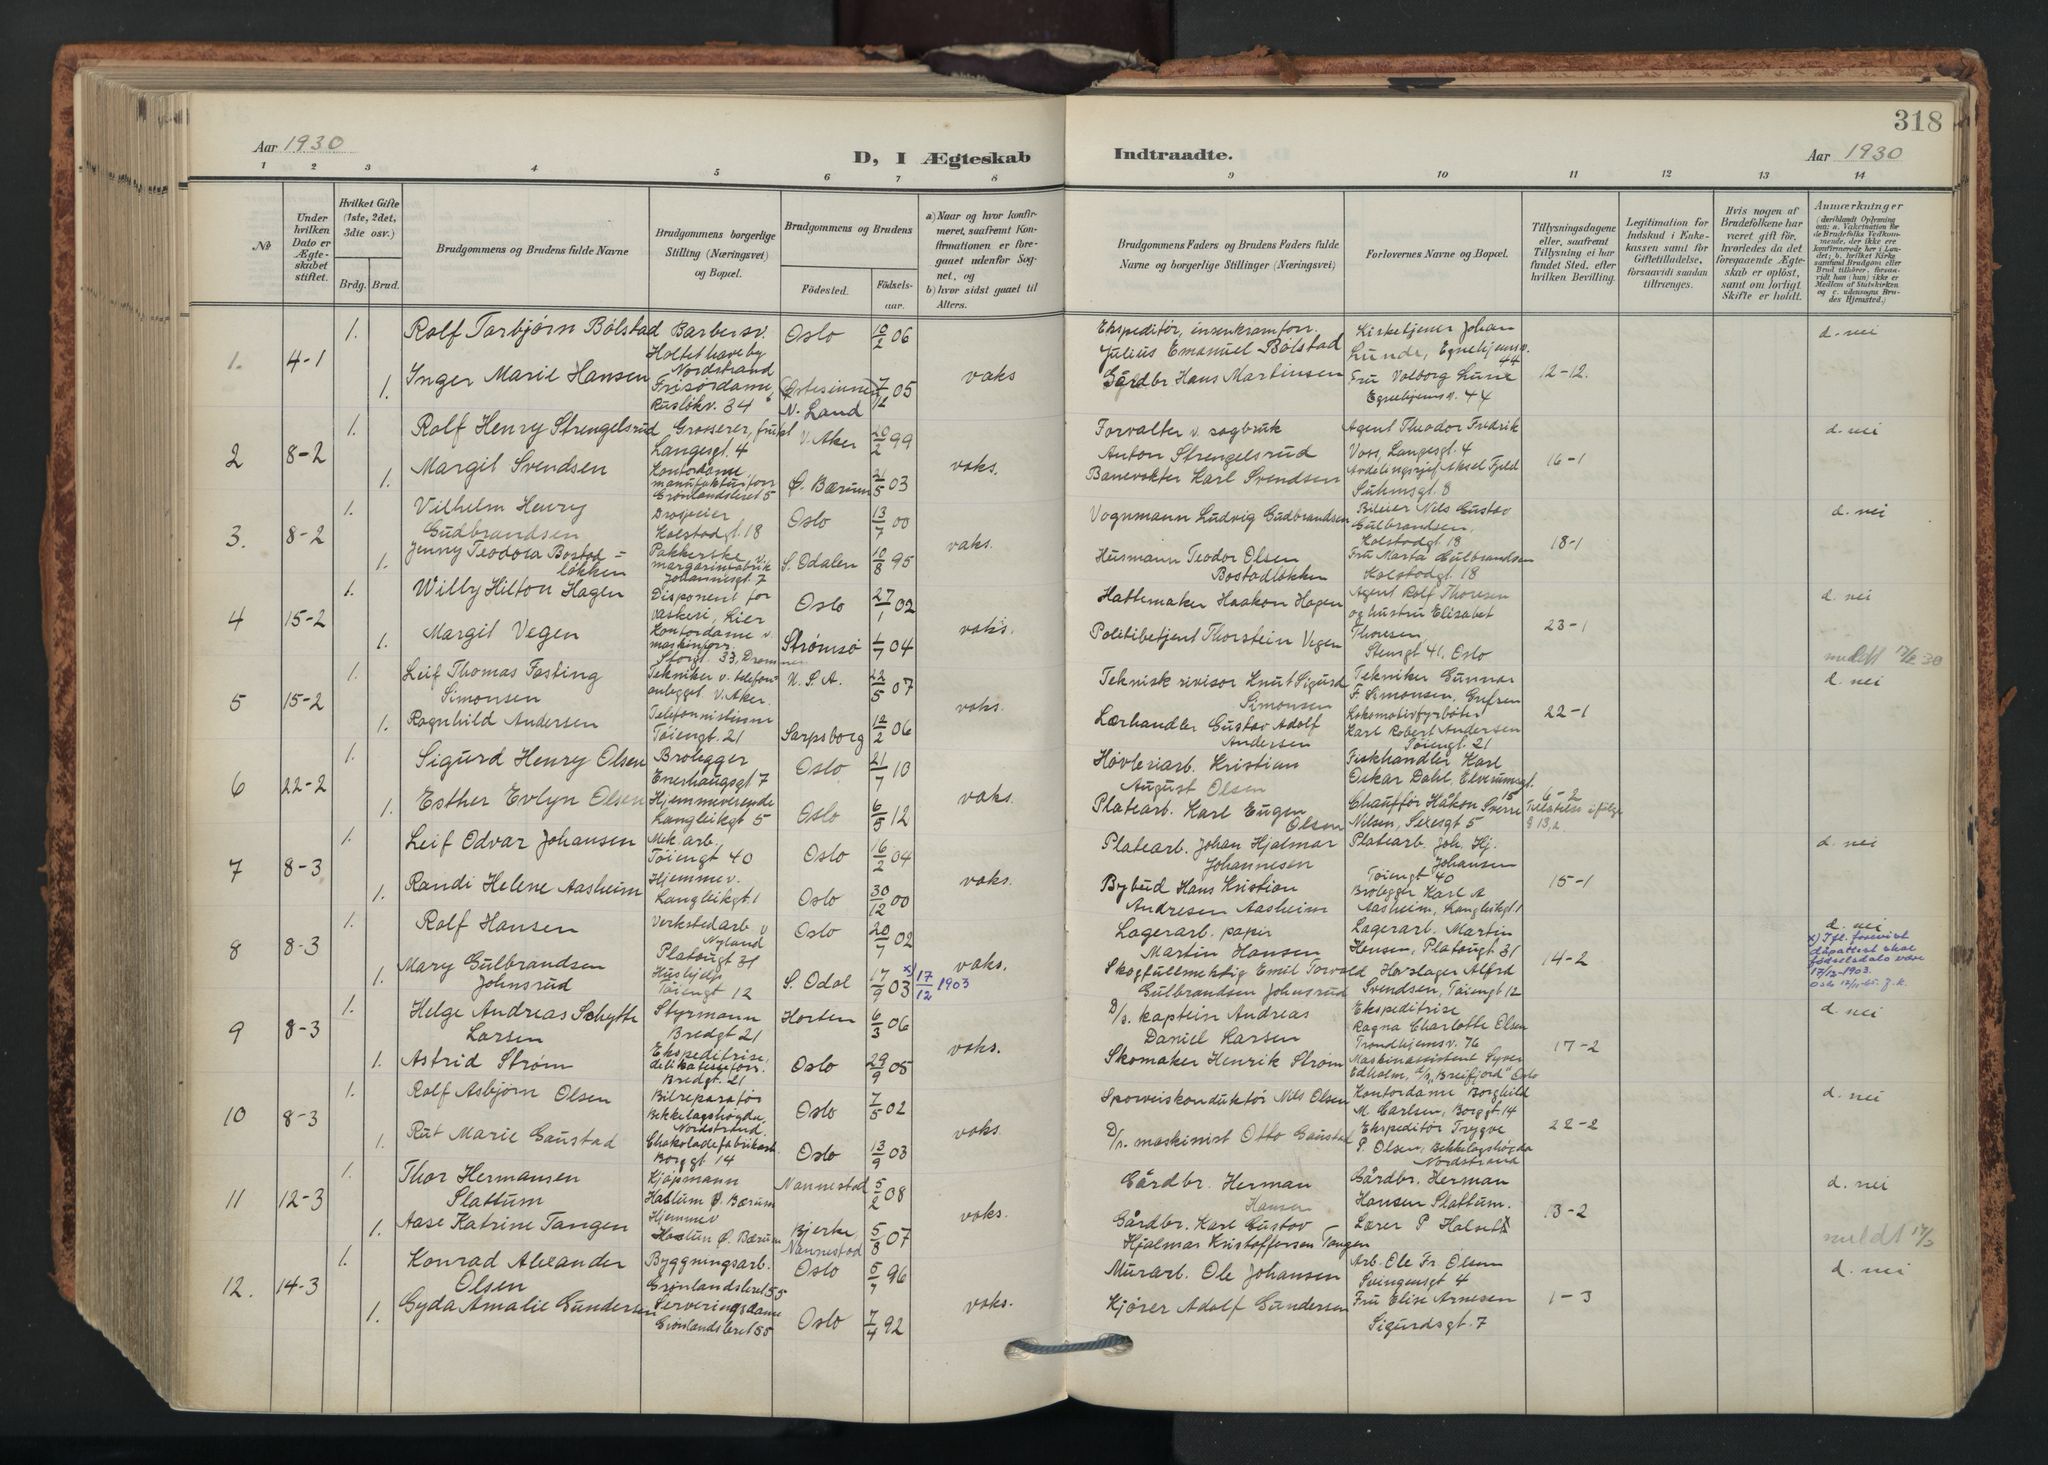 318
Aar 1930
D, I Ægteskab
Indtraadte.
Aar 1930
1 2 3 4 5 6 7 8 9 10 11 12 13 14
No
Under
hvilken
Dato er
Ægte-
skabet
stiftet.
Hvilket Gifte
(1ste, 2det,
3die osv.)
Brdg. Brud.
Brudgommens og Brudens fulde Navne
Brudgommens borgerlige
Stilling (Næringsvei)
og Bopæl.
Brudgommens og Brudens
Födested.
Födsels-
aar.
a) Naar og hvor konfir-
meret, saafremt Kon-
firmationen er fore-
gaaet udenfor Sog-
net, og
b) hvor sidst gaaet til
Alters.
Brudgommens Faders og Brudens Faders fulde
Navne og borgerlige Stillinger (Næringsvei)
Forlovernes Navne og Bopæl.
Tillysningsdagene
eller, saafremt
Tillysning ei har
fundet Sted, efter
hvilken Bevilling.
Legitimation for
Indskud i Enke-
kassen samt for
Giftetilladelse,
forsaavidt saadan
tiltrænges.
Hvis nogen af
Brudefolkene har
været gift för,
hvorledes da det
foregaaende Ægte-
skab er oplöst,
samt om lovligt
Skifte er holdt.
Anmærkninger
(deriblandt Oplysning
om: a. Vaccination for
de Brudefolks Vedkom-
mende, der ikke ere
konfirmerede her i Lan-
det; b. hvilket Kirke-
samfund Brudgom eller
Brud tilhörer, forsaa-
vidt han (hun) ikke er
Medlem af Statskirken
og c. udensogns Bru-
des Hjemsted.)
1. 4-1 1. Rolf Torbjørn Bölstad
Barbersv.
Holtet haveby
Nordstrand
Oslo 10/2 06
Ekspeditör, isenkramforr.
Julius Emanuel Bölstad
Kirketjener Johan
Lunde, Egnehjemsv.
44
d. nei
1. Inger Marie Hansen
Frisördame
Rusløkv. 34
(Østesinnen)
N. Land
7/12 05
vaks
Gårdbr Hans Martinsen
Fru Valborg Lunde
Egnehjemsv. 44
12-12.
2 8-2 1. Rolf Henry Strengelsrud
Grosserer, frukt
Langesgt. 4
V. Aker 20/2 99
Forvalter v. sagbruk
Anton Strengelsrud
Agent Theodor Fredrik
Voss, Langesgt. 4
d. nei
1. Margit Svendsen
Kontordame
manufakturforr.
Grønlandsleret 5
Ø. Bærum 21/5 03
vaks.
Banevokter Karl Svendsen
Avdelingssjef Aksel Fjeld
Suhmsgt. 8
16-1
3. 8-2 1. Vilhelm Henry
Gudbrandsen
Drosjeeier
Kolstadgt 18
Oslo 13/7 00
Vognmann Ludvig Gudbrandsen
Bileier Nils Gustav
Gulbrandsen,
Kolstadgt 18
d. nei
1. Jenny Teodora Bostad-
løkken
Pakkerske v.
margarinfabrik
Johannesgt. 7
S. Odalen 10/8 95
vaks.
Husmann Teodor Olsen
Bostadløkken
Fru Marta Gulbrandsen
Kolstadgt. 18
18-1
4 15-2 1. Willy Hilton Hagen
Disponent for
vaskeri, Lier
Oslo 27/1 02
Hattemaker Haakon Hagen
Agent Rolf Thoresen
og hustru Elisabet
Thoresen,
Stensgt 41, Oslo
d. nei
1. Margit Vegen
Kontordame v.
maskinforr.
Storgt. 33, Drammen
Strømsø 1/7 04
vaks.
Politibetjent Thorstein Vegen
23-1
meldt 17/2 30
5 15-2 1. Leif Thomas Fasting
Simonsen
Tekniker v. telefon-
anlegget V. Aker.
U. S. A. 22/5 07
Teknisk revisor Knut Sigurd
Simonsen
Tekniker Gunnar
F. Simonsen, Grefsen
d. nei
1. Ragnhild Andersen
Telefonistinne
Töiengt. 21
Sarpsborg 12/2 06
vaks.
Lærhandler Gustav Adolf
Andersen
Lokomotivfyrböter
Karl Robert Andersen
Töiengt. 21
22-1
6 22-2 1. Sigurd Henry Olsen
Brolegger
Enerhaugsgt 7
Oslo 21/7 10
Høvleriarb. Kristian
August Olsen
Fiskhandler Karl
Oskar Dahl, Elverumsgt.
15
1. Esther Evlyn Olsen
Hjemmeværende
Langleikgt 5
Oslo 6/5 12
vaks.
Platearb. Karl Eugen
Olsen
Chauffør Håkon Sverre
Nilsen, Seksgt 5
6-2
§ 13,2.
7 8-3 1. Leif Odvar Johansen
Mek. arb.
Töiengt 40
Oslo 16/2 04
Platearb. Johan Hjalmar
Johannesen
Platearb. Joh. Hj.
Johansen
Töiengt 40
d. nei
1. Randi Helene Aasheim
Hjemmev.
Langleikgt. 1
Oslo 30/12 00
vaks.
Bybud Hans Kristian
Andresen Aasheim
Brolegger Karl A
Aasheim, Langleikgt. 1
15-1
8 8-3 1. Rolf Hansen
Verkstedarb v
Nyland
Platougt 31
Oslo 20/7 02
Lagerarb. papir
Martin Hansen
Lagerarb. Martin
Hansen, Platougt 31
d. nei
1. Mary Gulbrandsen
Johnsrud
Hushjelp
Töiengt 12
S. Odal 17/9 03 x) 17/12 1903
vaks.
Skogfullmektig Emil Torvald
Gulbrandsen Johnsrud
Hovslager Alfred
Svendsen, Töiengt 12
14-2
x) Ifl. forevist
dåpattest skal
fødselsdato være
17/12-1903.
9 8-3 1. Helge Andreas Schytte
Larsen
Styrmann
Bredgt 21
Horten 6/3 06
D/s. kaptein Andreas
Daniel Larsen
Ekspeditrise
Ragna Charlotte Olsen
Trondhjemsv. 76
d. nei
1. Astrid Strøm
Ekspeditrise,
delikatesseforr.
Bredgt. 21
Oslo 29/9 05
vaks.
Skomaker Henrik Strøm
Maskinassistent Syver
Edholm, d/s „Breifjord" Oslo
17-2
10 8-3 1. Rolf Asbjörn Olsen
Bilreparatör
Bekkelagshøgda
Nordstrand.
Oslo 7/5 02
Sporveiskonduktör Nils Olsen
Kontordame Borghild
M. Carlsen, Borggt. 14
d. nei
1. Rut Marie Gaustad
Chokoladefabrikarb.
Borggt 14
Oslo 13/9 03
vaks.
D/s. maskinist Otto Gaustad
Ekspeditör Trygve
P. Olsen, Bekkelagshøgda
Nordstrand
22-2
11 12-3 1. Thor Hermansen
Slattum
Kjöpmann
Haslum Ø. Bærum
Nannestad 5/2 08
Gårdbr. Herman
Hansen
Gårdbr. Herman
Hansen Slattum.
d. nei
1. Aase Katrine Tangen
Hjemmev
Haslum Ø. Bærum
Bjerke,
Nannestad
5/8 07
vaks.
Gårdbr. Karl Gustav
Hjalmar Kristoffersen Tangen
Lærer P Halset
13-2
meldt 17/3
12. 14-3 1. Konrad Alexander
Olsen
Byggningsarb.
Grønlandsleret 55
Oslo 5/7 96
Murarb. Ole Johansen
Arb. Ole Fr. Olsen
Svingensgt 4
d. nei
1. Gyda Amalie Gundersen
Serveringsdame
Grønlandsleret 55
Oslo 7/4 92
vaks.
Kjörer Adolf Gundersen
Fru Elise Arnesen
Sigurdsgt. 7
1-3